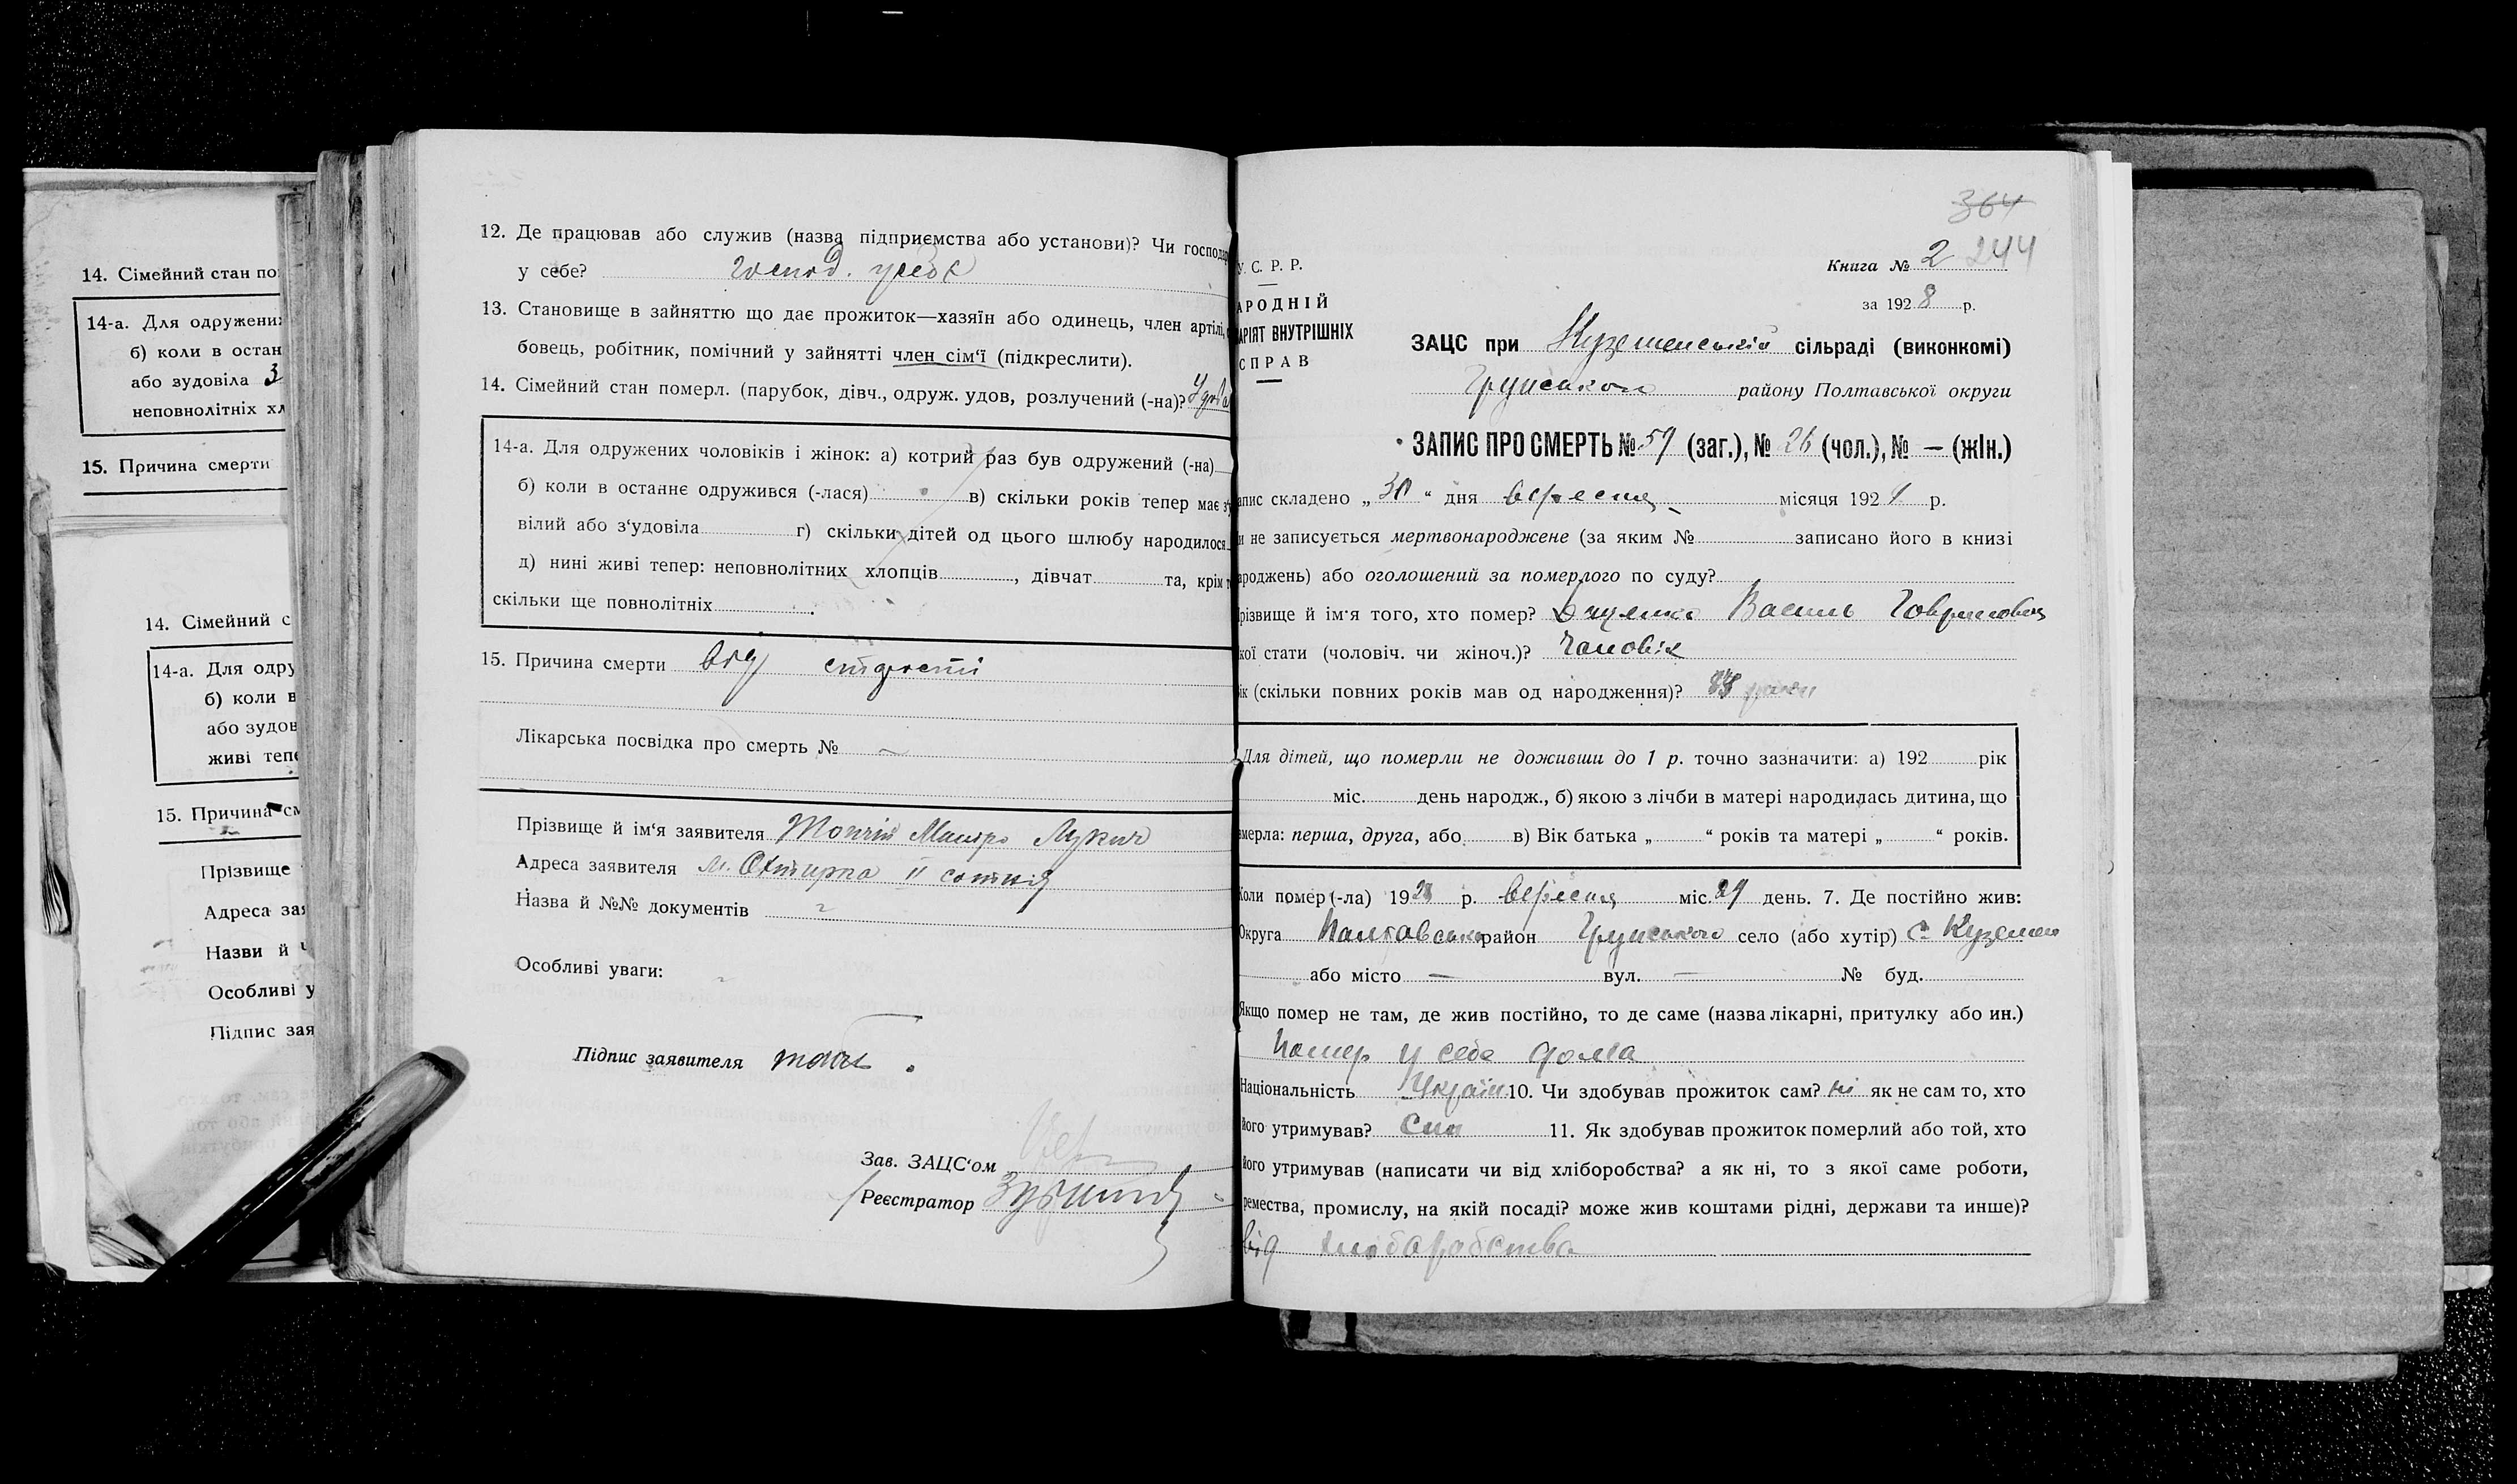 14. Сімейний стан по
14-а. Для одружени
б) коли в остан
або зудовіла 3
неповнолітніх хл
15. Причина смерти
14. Сімейний с
14-а. Для одру
б) коли в
або зудов
живі тепе
15. Причина см
Прізвище
Адреса зая
Назви й
Особливі у
Підпис зая
12. Де працював або служив (назва підприємства або установи)? Чи господар
у себе? господ. у себе
13. Становище в зайняттю що дає прожиток—хазяїн або одинець, член артілі,
бовець, робітник, помічний у зайнятті член сім'ї (підкреслити).
14. Сімейний стан померл. (парубок, дівч., одруж. удов, розлучений (-на)?
14-а. Для одружених чоловіків і жінок: а) котрий раз був одружений (-на)
б) коли в останнє одружився (-лася) в) скільки років тепер має з'у
вілий або з'удовіла г) скільки дітей од цього шлюбу народилося
д) нині живі тепер: неповнолітних хлопців , дівчат та, крім т
скільки ще повнолітніх .
15. Причина смерти від старости
Лікарська посвідка про смерть № —
Прізвище й ім'я заявителя Лукич
Адреса заявителя м. Охтирка II сотня
Назва й №№ документів
Особливі уваги:
Підпис заявителя
Зав. ЗАЦС'ом
Реєстратор
364
Книга № 2 244
У. С. Р. Р.
за 1928 р.
АРОДНІЙ
АРІЯТ ВНУТРІШНІХ
СПРАВ
ЗАЦС при Куземенській сільраді (виконкомі)
Грунського району Полтавської округи
ЗАПИС ПРО СМЕРТЬ № 59 (заг.), № 26 (чол.), № — (жін.)
апис складено „ 30 " дня вересня місяця 192 р.
и не записується мертвонароджене (за яким № записано його в книзі
ароджень) або оголошений за померлого по суду?
різвище й ім'я того, хто помер? Василь Гаврилович
кої стати (чоловіч. чи жіноч.)? Чоловік
ік (скільки повних років мав од народження)?
Для дітей, що померли не доживши до 1 р. точно зазначити: а) 192 рік
міс. день народж., б) якою з лічби в матері народилась дитина, що
мерла: перша, друга, або в) Вік батька „ " років та матері „ " років.
Коли помер (-ла) 1928 р. вересня міс. 29 день. 7. Де постійно жив:
Округа Полтавська район Грунського село (або хутір) с. Куземен
або місто — вул. — № буд.
Якщо помер не там, де жив постійно, то де саме (назва лікарні, притулку або ин.)
Помер у себе дома
Національність Україн. 10. Чи здобував прожиток сам? ні як не сам то, хто
його утримував? Син 11. Як здобував прожиток померлий або той, хто
його утримував (написати чи від хліборобства? а як ні, то з якої саме роботи,
ремества, промислу, на якій посаді? може жив коштами рідні, держави та инше)?
від хліборобства